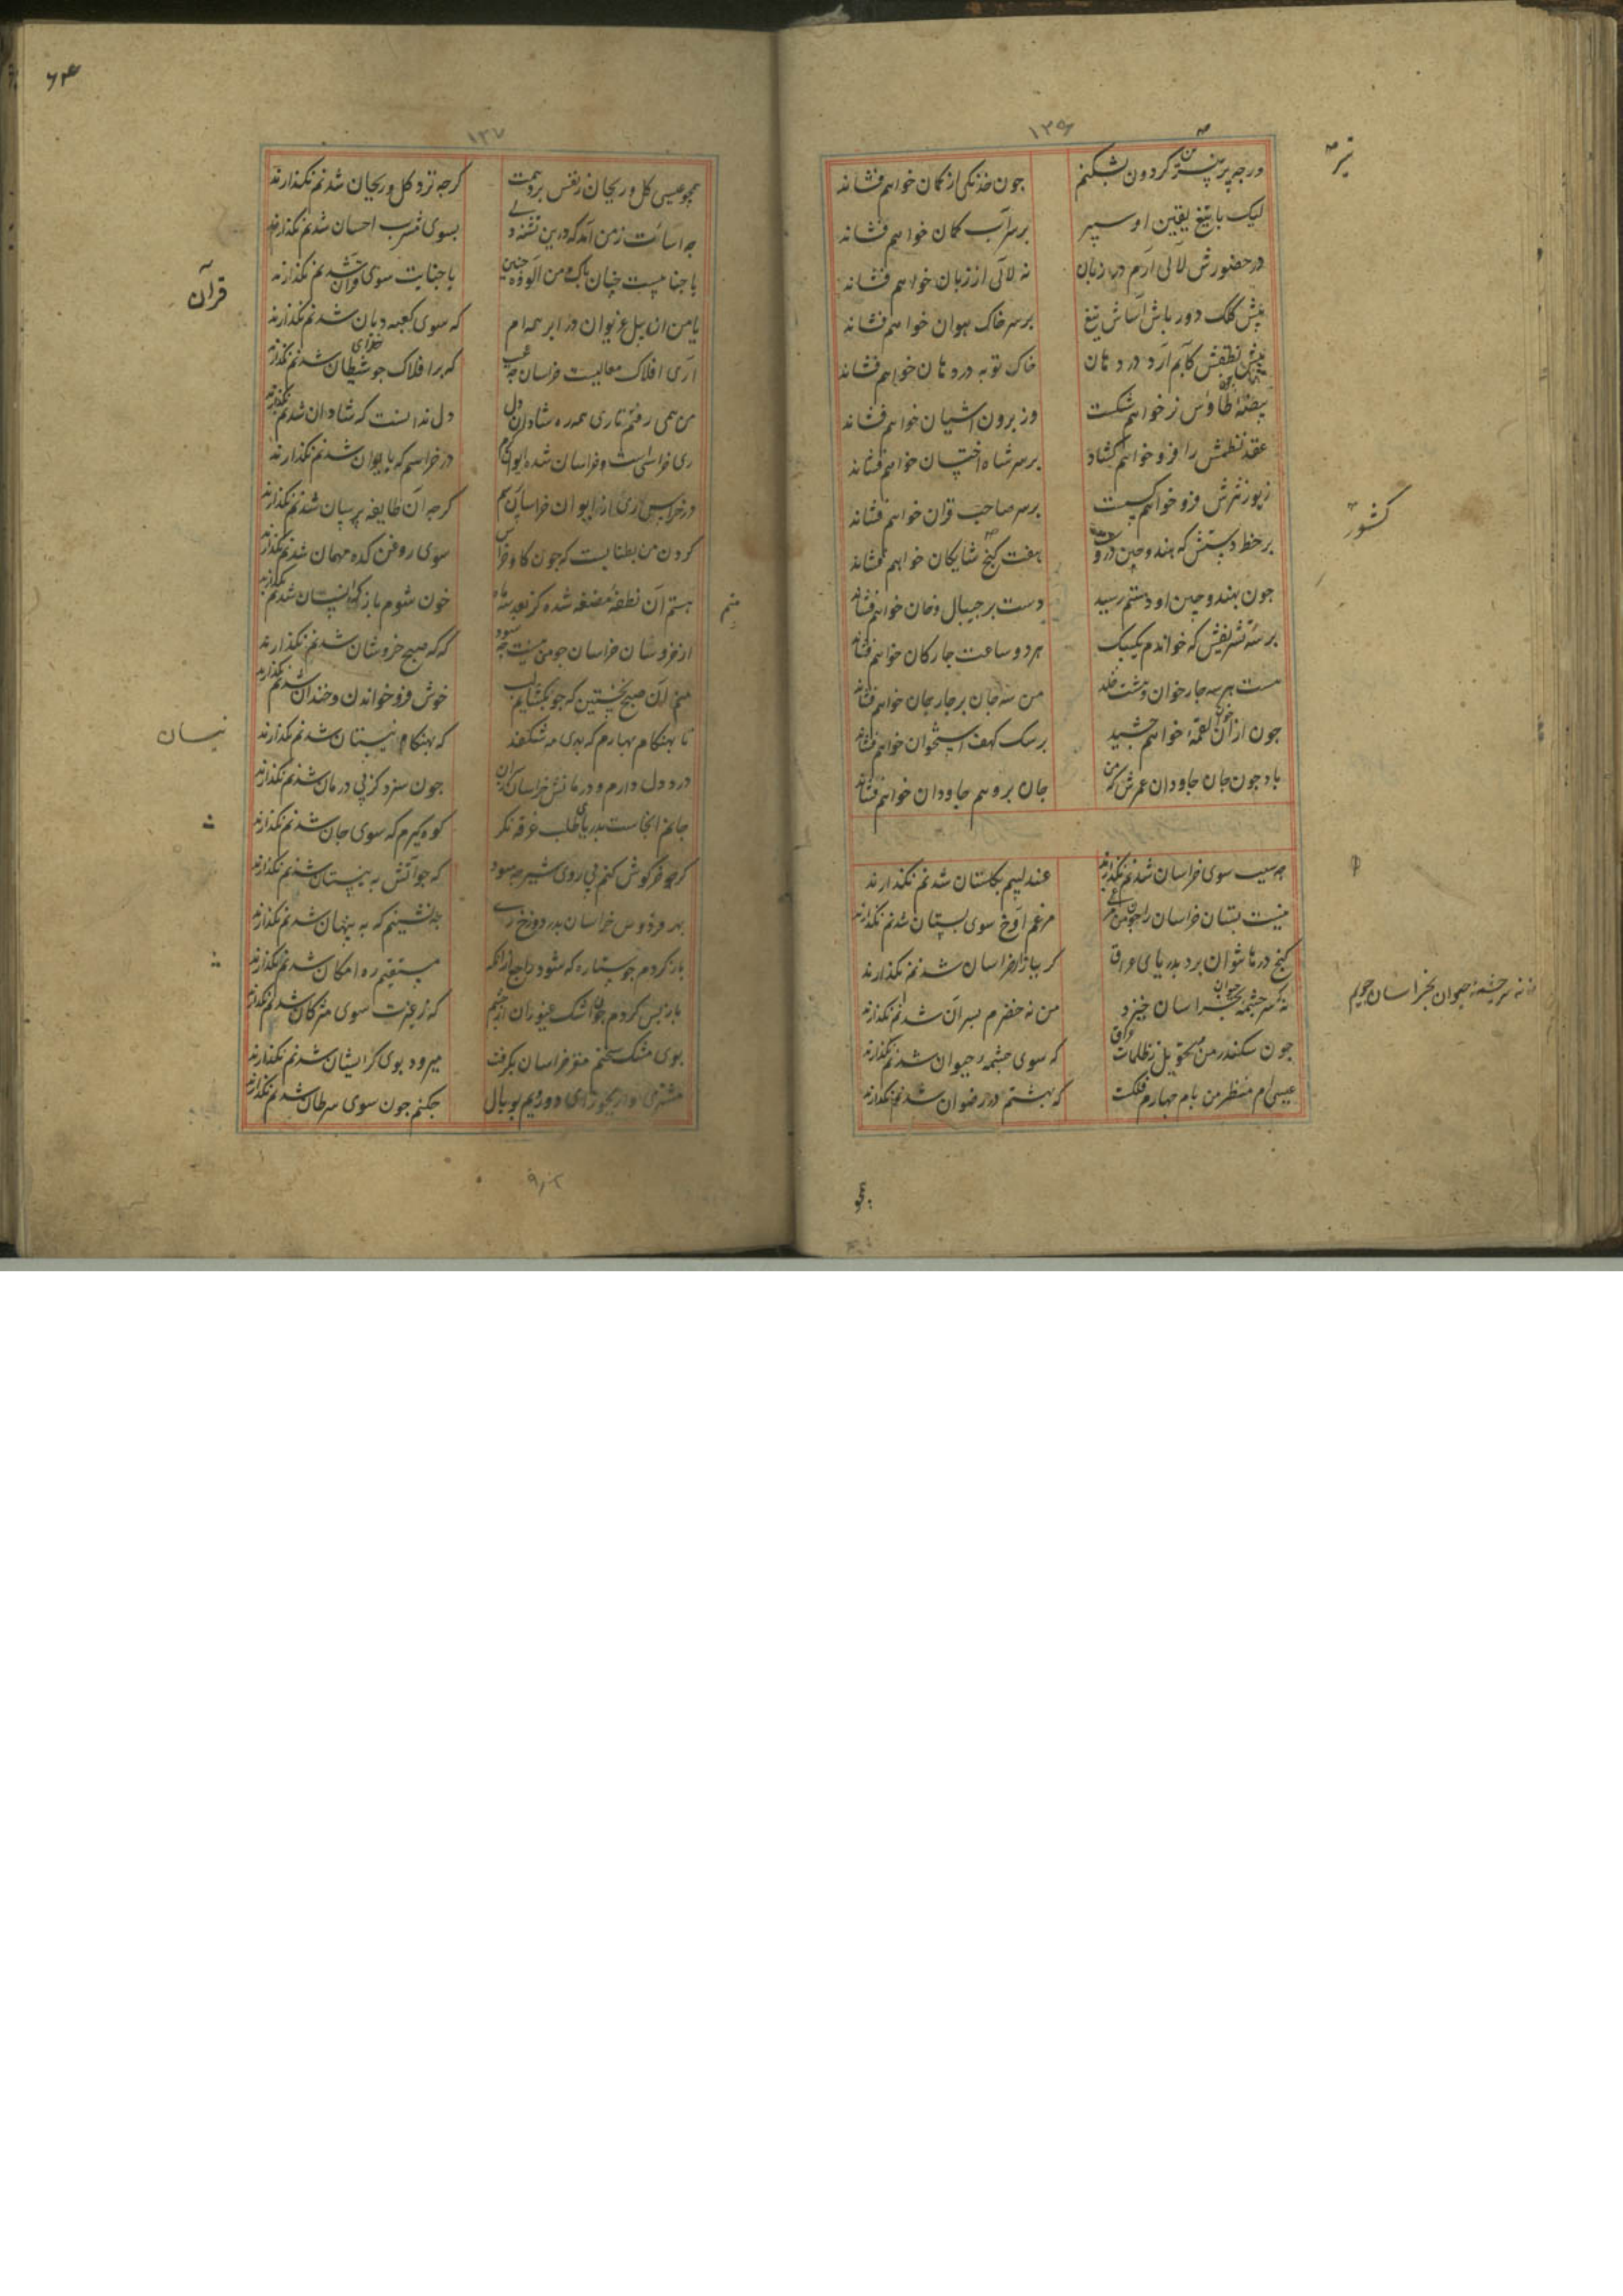 ۱۳۶
ور چه پر تیر گردون بشکنم چون خدنگی از کمان خواهم فشاند
تیر
لیک با تیغ یقین او سپر بر سر آب کمان خواهم فشاند
در حضورش لآلی آرم در زبان نه لآلی از زبان خواهم فشاند
پیش کلک دورباش آساش تیغ بر سر خاک هوان خواهم فشاند
پیش نطقش کآبم آرد در دهان خاک توبه در دهان خواهم فشاند
بیضهٔ طاوس نر خواهم شکست وز برون آشیان خواهم فشاند
عقد نظمش را فرو خواهم گشاد بر سر شاه اخستان خواهم فشاند
زیور نثرش فرو خواهم گسست بر سر صاحب قران خواهم فشاند
کشور
بر خط دستش که هند و چین درو هفت گنج شایکان خواهم فشاند
چون بهند و چین او دستم رسید دست بر جیبال و خان خواهم فشاند
بر سه تشریفش که خواندم یکبیک هر دو ساعت چار کان خواهم فشاند
هست هر سه چار خوان و هشت خلد من سه جان بر چار جان خواهم فشاند
چون از آن خوان لقمهٔ خواهم چشید بر سک کهف استخوان خواهم فشاند
باد چون جان جاودان عمرش که من جان بروهم جاودان خواهم فشاند
چه سبب سوی خراسان شدنم نگذارند عندلیبم بگلستان شدنم نگذارند
نیست بستان خراسان را چون من مرغی مرغم آوخ سوی بستان شدنم نگذارند
گنج درها نتوان برد بدریای عراق گر ببازار خراسان شدنم نگذارند
نه که سرچشمه حیوان بخراسان خیزد من نه خضرم بسر آن شدنم نگذارند
نه نه سرچشمهٔ حیوان بخراسان جویم
چون سکندر من و تحویل بظلمات عراق که سوی چشمهٔ حیوان شدنم نگذارند
عیسی ام منظر من بام چهارم فلکست که بهشتم در رضوان شدنم نگذارند
همچو
۶۴
۱۳۷
همچو عیسی گل و ریحان ز نفس برد همت گرچه نزد گل و ریحان شدنم نگذارند
چه اسائت ز من آمد که درین تشنه دلی بسوی مشرب احسان شدنم نگذارند
یا جنابیست چنان پاک و من آلوده چنین یا جنابت سوی قرآن شدنم نگذارند
قرآن
یا من آن پیل غریوان در ابرهه‌ام که سوی کعبه دیان شدنم نگذارند
آری افلاک معالیست خراسان چه عجب که بر افلاک چو شیطان شدنم نگذارند
من همی رفتم تا ری همه ره شادان دل دل ندانست که شادان شدنم نگذارند
ری خراسست و خراسان شده ایوان در خراسم که بایوان شدنم نگذارند
در خراس ری از ایوان خراسان پرسم گرچه آن طایفه پرسان شدنم نگذارند
گردن من بطنابیست که چون کاو خراس سوی روغن کده مهمان شدنم نگذارند
هستم آن نطفهٔ مضغه شده کز بعد سه ماه خون شوم باز که انسان شدنم نگذارند
از خروشان خراسان چو منی نیست چه سود که گه صبح خروشان شدنم نگذارند
منم
منم آن صبح نخستین که چو بکشایم لب خوش فرو خواندن و خندان شدنم نگذارند
تا بهنگام بهارم که بدی مه شکفند که بهنگام نیسان شدنم نگذارند
نیسان
درد دل دارم و درمانش خراسان چون سزد کز پی درمان شدنم نگذارند
جانم آنجاست بدریای طلب غرقه نگر کوه گیرم که سوی جان شدنم نگذارند
گر چو خرگوش کنم پی روی شیر چه سود که چو آتش به نیستان شدنم نگذارند
بهر فردوس خراسان بدر دوزخ ری چه نشینم که به پنهان شدنم نگذارند
بازگردم چو ستاره که شود راجع از آنکه مستقیم ره امکان شدنم نگذارند
باز پس گردم چون اشک غیوران از چشم که ز غیرت سوی مژگان شدنم نگذارند
بوی مشک سخنم مغز خراسان بگرفت میرود بوی گر ایشان شدنم نگذارند
مشتری وار بجوزای دورویم بوبال چکنم چون سوی سرطان شدنم نگذارند